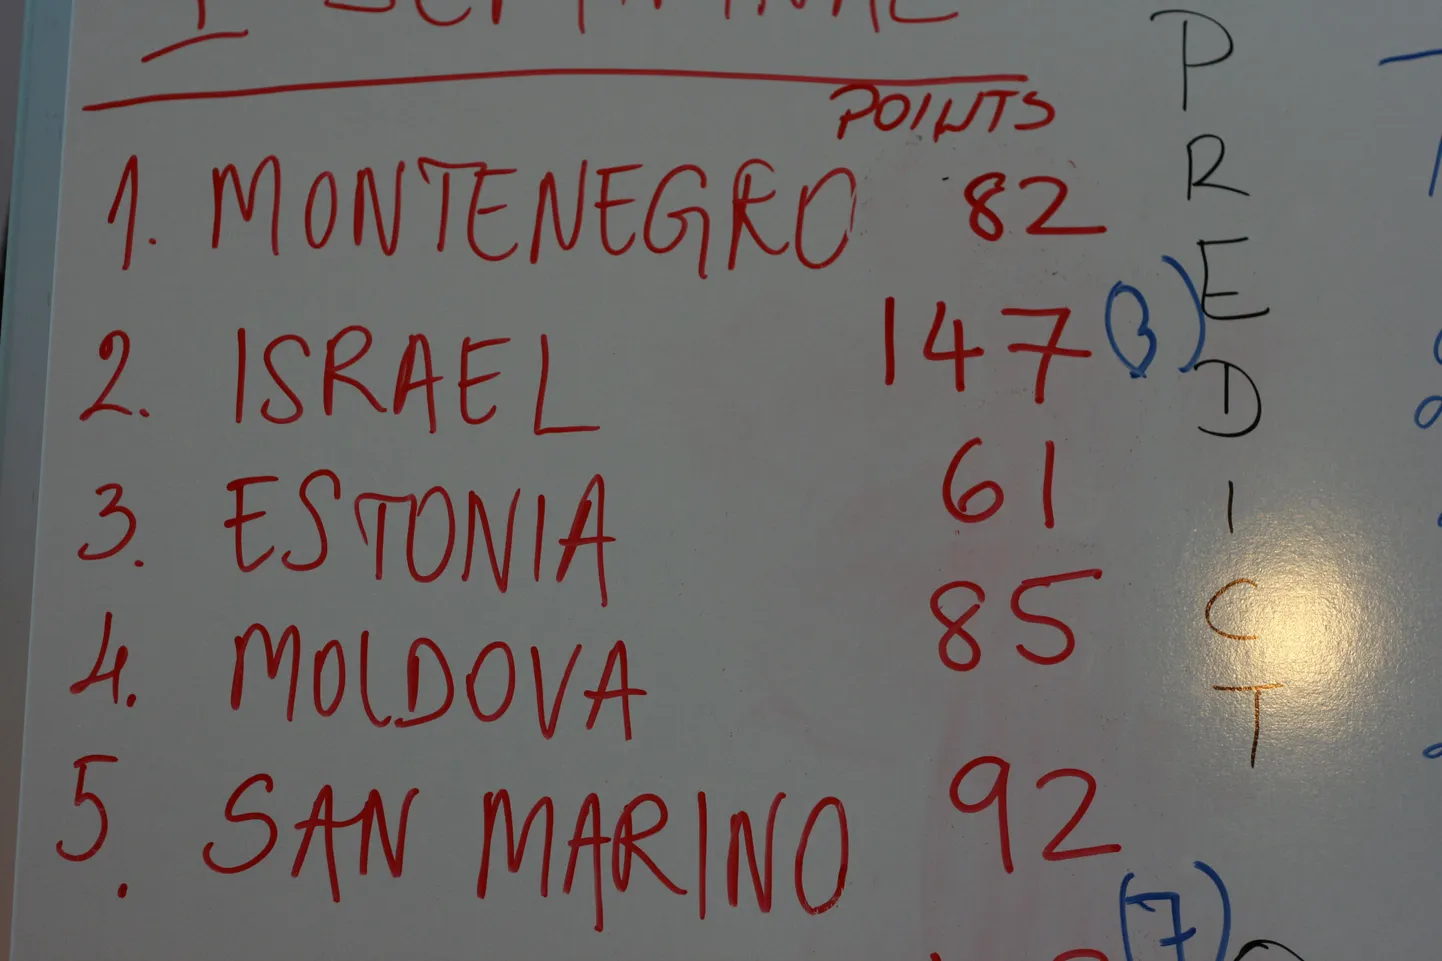 1 SEMIFINAL
POINTS
1. MONTENEGRO 82
2. ISRAEL 147 (3)
3. ESTONIA 61
4. MOLDOVA 85
5. SAN MARINO 92
(7)
PREDICT